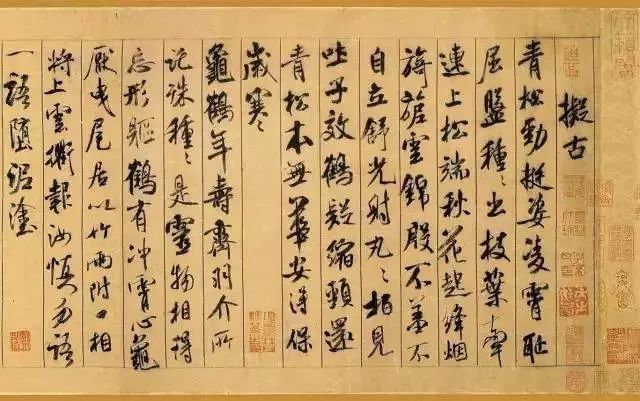 擬古
青松勁挺姿凌霄恥
屈盤種〻出枝葉牽
連上松端秋花起絳烟
旖旎雲錦殷不羞不
自立舒光射丸〻柏見
吐子效鶴疑縮頸還
青松本無華安得保
歲寒
龜鶴年壽齊羽介所
託殊種〻是靈物相得
忘形軀鶴有沖霄心龜
厭曳尾居以竹兩附口相
將上雲衢報汝慎勿語
一語墮泥塗